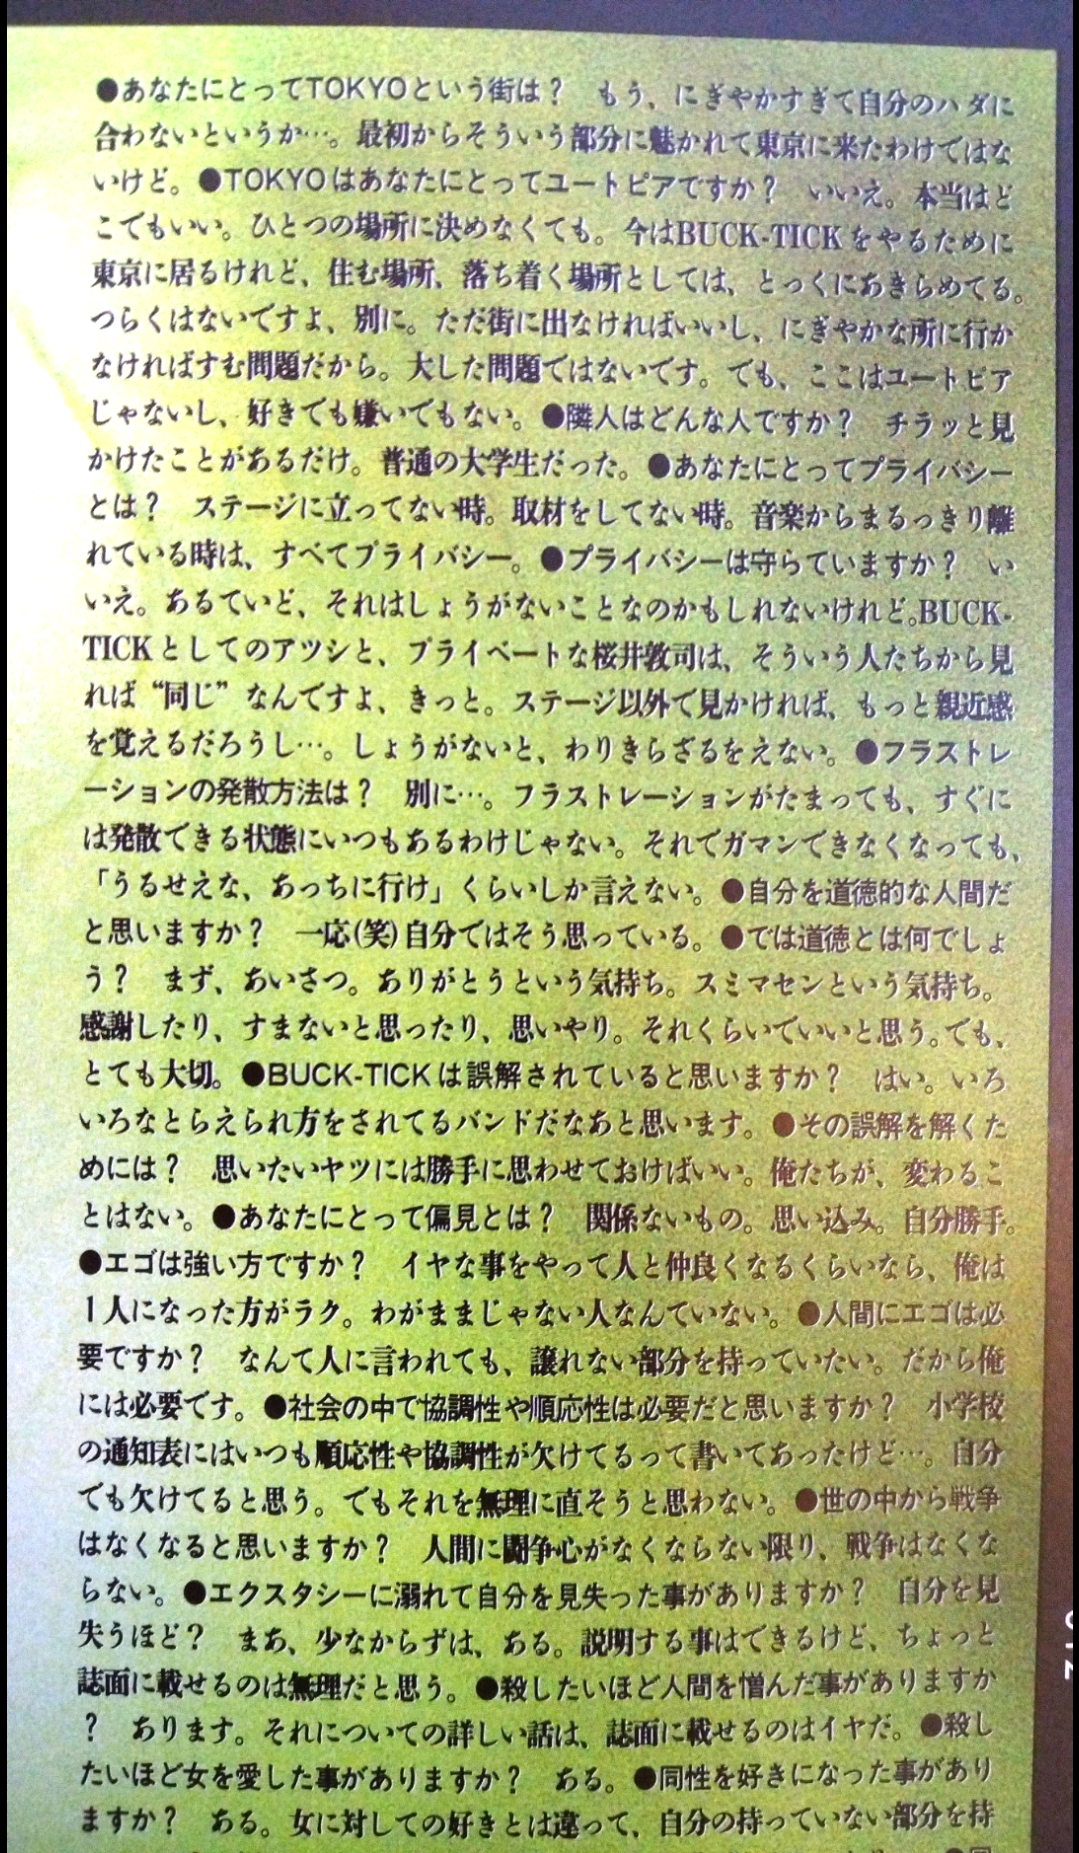 ●あなたにとってTOKYOという街は？　もう、にぎやかすぎて自分のハダに
合わないというか…。最初からそういう部分に魅かれて東京に来たわけではな
いけど。●TOKYOはあなたにとってユートピアですか？　いいえ。本当はど
こでもいい。ひとつの場所に決めなくても。今はBUCK-TICKをやるために
東京に居るけれど、住む場所、落ち着く場所としては、とっくにあきらめてる。
つらくはないですよ、別に。ただ街に出なければいいし、にぎやかな所に行か
なければすむ問題だから。大した問題ではないです。でも、ここはユートピア
じゃないし、好きでも嫌いでもない。●隣人はどんな人ですか？　チラッと見
かけたことがあるだけ。普通の大学生だった。●あなたにとってプライバシー
とは？　ステージに立ってない時。取材をしてない時。音楽からまるっきり離
れている時は、すべてプライバシー。●プライバシーは守らていますか？　い
いえ。あるていど、それはしょうがないことなのかもしれないけれど。BUCK-
TICKとしてのアツシと、プライベートな桜井敦司は、そういう人たちから見
れば“同じ”なんですよ、きっと。ステージ以外で見かければ、もっと親近感
を覚えるだろうし…。しょうがないと、わりきらざるをえない。●フラストレ
ーションの発散方法は？　別に…。フラストレーションがたまっても、すぐに
は発散できる状態にいつもあるわけじゃない。それでガマンできなくなっても、
「うるせえな、あっちに行け」くらいしか言えない。●自分を道徳的な人間だ
と思いますか？　一応(笑)自分ではそう思っている。●では道徳とは何でしょ
う？　まず、あいさつ。ありがとうという気持ち。スミマセンという気持ち。
感謝したり、すまないと思ったり、思いやり。それくらいでいいと思う。でも、
とても大切。●BUCK-TICKは誤解されていると思いますか？　はい。いろ
いろなとらえられ方をされてるバンドだなあと思います。●その誤解を解くた
めには？　思いたいヤツには勝手に思わせておけばいい。俺たちが、変わるこ
とはない。●あなたにとって偏見とは？　関係ないもの。思い込み。自分勝手。
●エゴは強い方ですか？　イヤな事をやって人と仲良くなるくらいなら、俺は
1人になった方がラク。わがままじゃない人なんていない。●人間にエゴは必
要ですか？　なんて人に言われても、譲れない部分を持っていたい。だから俺
には必要です。●社会の中で協調性や順応性は必要だと思いますか？　小学校
の通知表にはいつも順応性や協調性が欠けてるって書いてあったけど…。自分
でも欠けてると思う。でもそれを無理に直そうと思わない。●世の中から戦争
はなくなると思いますか？　人間に闘争心がなくならない限り、戦争はなくな
らない。●エクスタシーに溺れて自分を見失った事がありますか？　自分を見
失うほど？　まあ、少なからずは、ある。説明する事はできるけど、ちょっと
誌面に載せるのは無理だと思う。●殺したいほど人間を憎んだ事がありますか
？　あります。それについての詳しい話は、誌面に載せるのはイヤだ。●殺し
たいほど女を愛した事がありますか？　ある。●同性を好きになった事があり
ますか？　ある。女に対しての好きとは違って、自分の持っていない部分を持